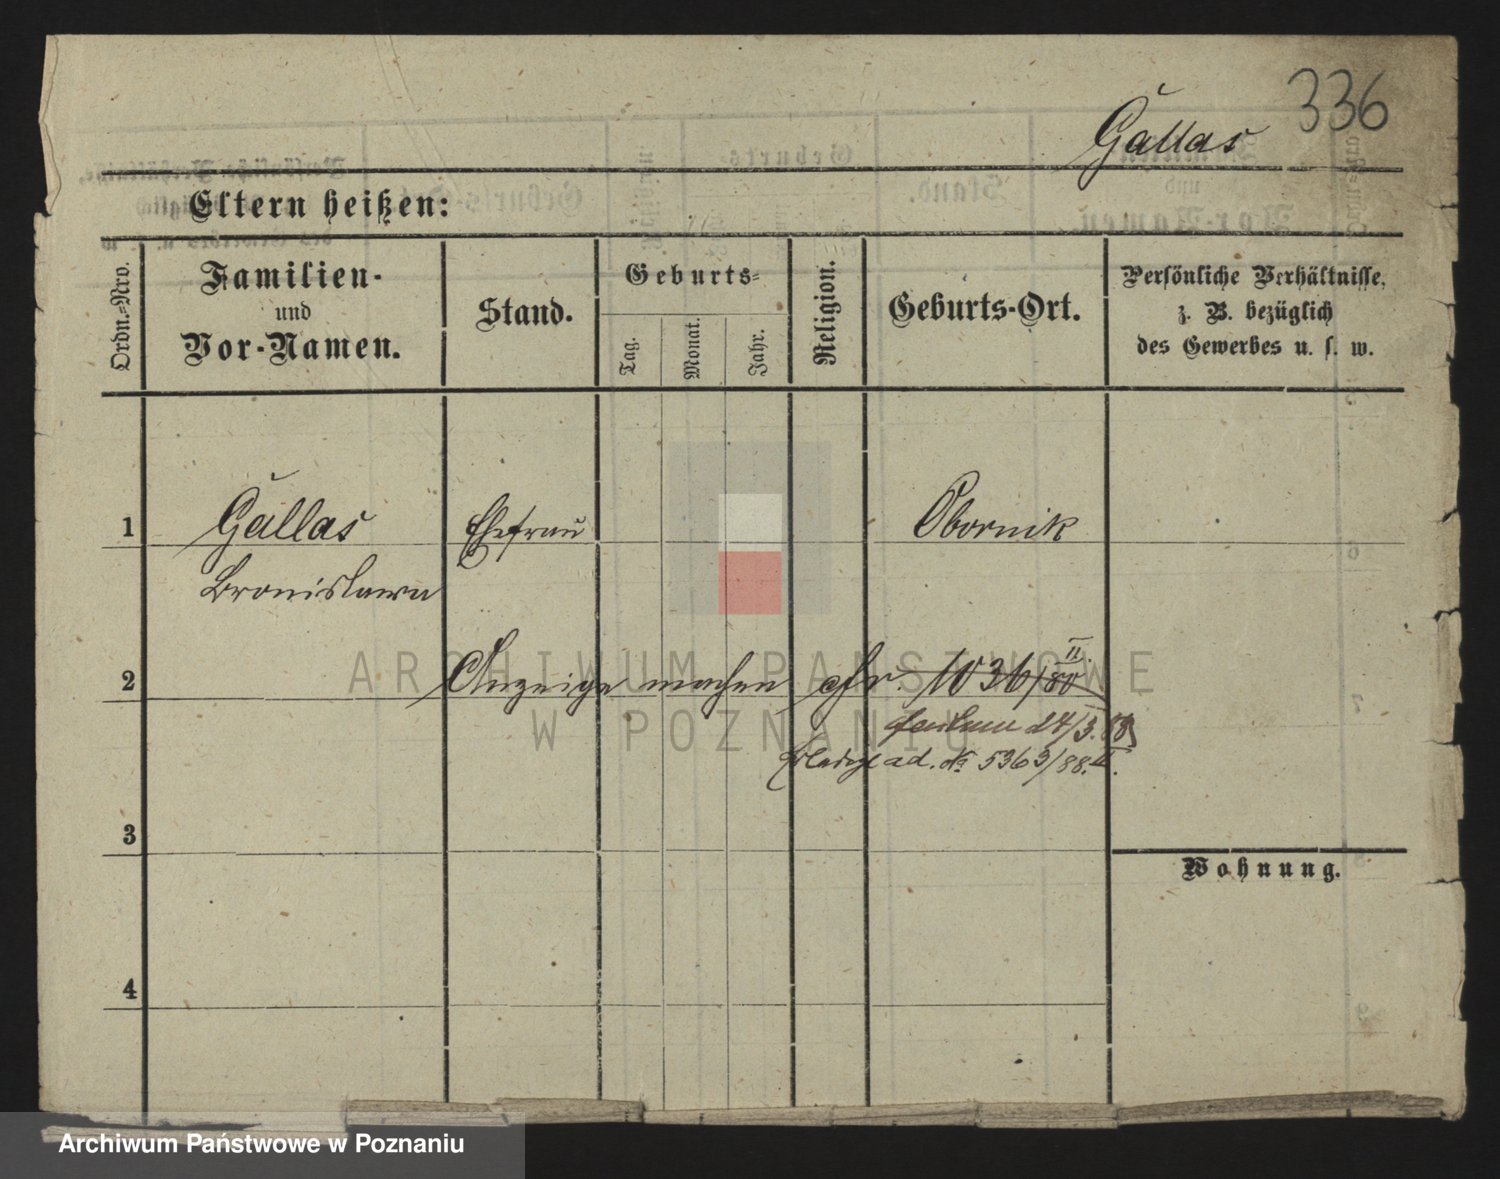 336
Gallas
Eltern heißen:
Ordn.-Nro.
Familien-
und
Vor-Namen.
Stand.
Geburts-
Tag.
Monat.
Jahr.
Religion.
Geburts-Ort.
Persönliche Verhältnisse,
z. B. bezüglich
des Gewerbes u. s. w.
1
Gallas
Ehefrau
Obornik
Bronislawa
2
Anzeige machen cfr. 1036/80 II
24/3.88
ad. No 5363/88. II.
3
Wohnung.
4
ARCHIWUM PAŃSTWOWE
W POZNANIU
Archiwum Państwowe w Poznaniu